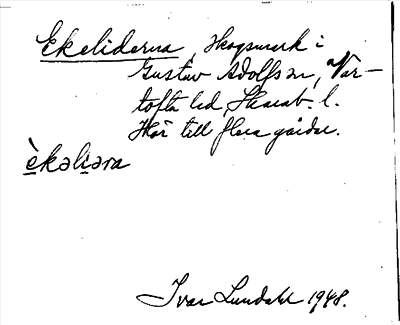 Ekeliderna, Skogsmark i
Gustav Adolfs sn, Var-
tofta hd, Skarab. l.
Hör till flera gårdar.
èkəliəra
Ivar Lundahl 1948.